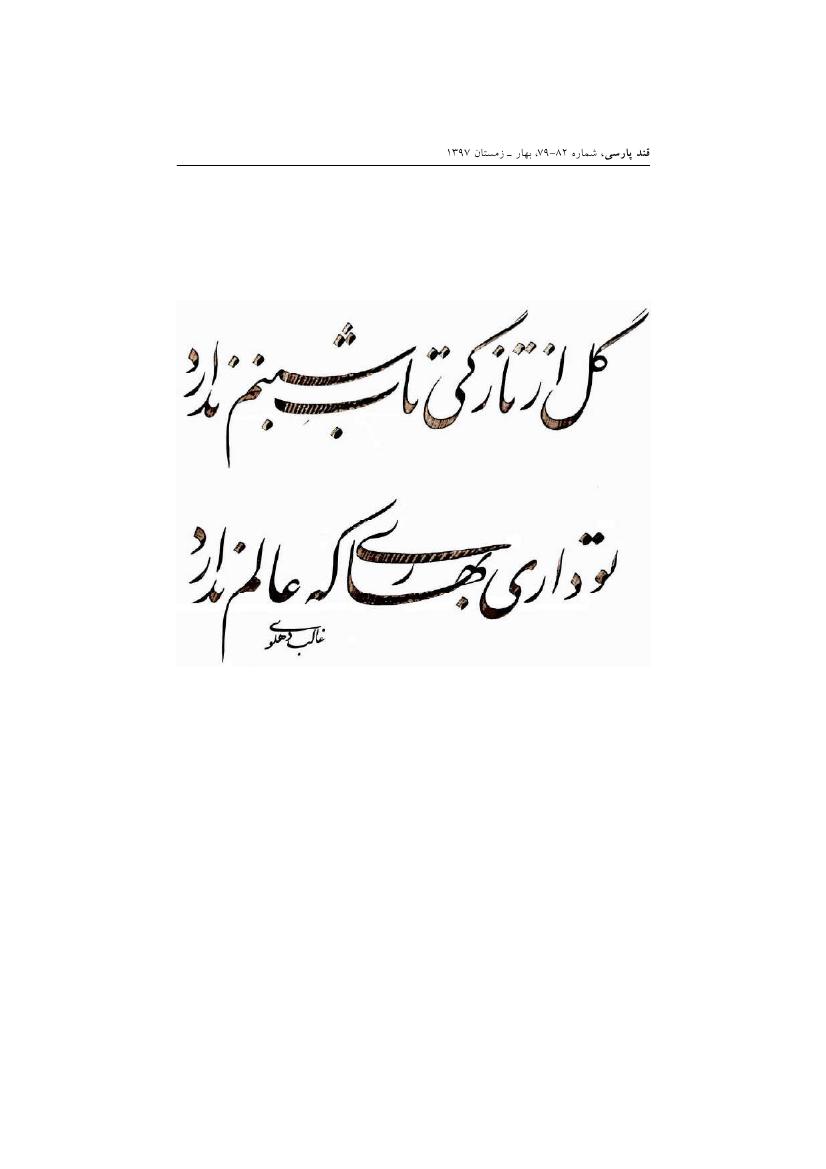 قند پارسی، شماره ۸۲-۷۹، بهار ـ زمستان ۱۳۹۷
گل از تازگی تاب شبنم ندارد
تو داری بهاری که عالم ندارد
غالب دهلوی